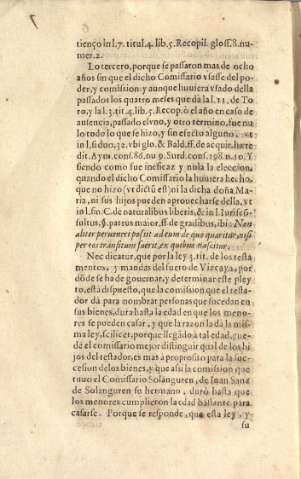 tienço in l.7. titul.4. lib.5. Recopil. gloss.8. nu-
mer.2.
Lo tercero, porque se passaron mas de ocho
años sin que el dicho Comissario vsasse del po-
der, y comision: y aunque huuiera vsado della
passados los quatro meses que da la l.33. de To-
ro, y la l.7.tit.4.lib.5. Recop. ò el año en caso de
ausencia, passado el vno, y otro termino, fue na-
lo todo lo que se hizo, y sin efecto alguno. vt
in l.si duo.32. vbi glo. & Bald. ff. de acquir. hære
dit. Aym. conf.86. nu 9. Surd. conf.298. n.10. Y
siendo como fue ineficaz y nula la eleccion,
quando el dicho Comissario la huuiera hecho,
que no hizo (vt dictũ est) ni la dicha doña Ma-
ria, ni sus hijos pueden aprouecharse della, vt
in l.fin. C. de naturalibus liberis, & in l.Iurisc
sultus, §. partus maior. ff. de gradibus, ibi: Nec
aliter peruenire possit ad eum de quo quæritur, nisi
per eos transitum fuerit, ex quibus nascitur.
Nec dicatur, que por la ley 3. tit. de los testa
mentos, y mandas del fuero de Vizcaya, por
dõde se ha de gouernar, y determinar este pley
to, está dispuesto, que la comision que el testa-
dor dà para nombrar personas que sucedan en
sus bienes, dura hasta la edad en que los meno-
res se pueden casar, y que la razon la dà la mis-
ma ley, scilicet, porque llegãdo à tal edad, pue-
de el comissario mejor distinguir qual de los hi-
jos del testador, es mas à proposito para la suc-
cesion de los bienes, y que assi la comision que
tuuo el Comissario Solanguren, de Iuan bana
de Solanguren su hermano, durò hasta que
los menores cumplieron la edad bastante para
casarse. Porque se responde, que esta ley, y
su